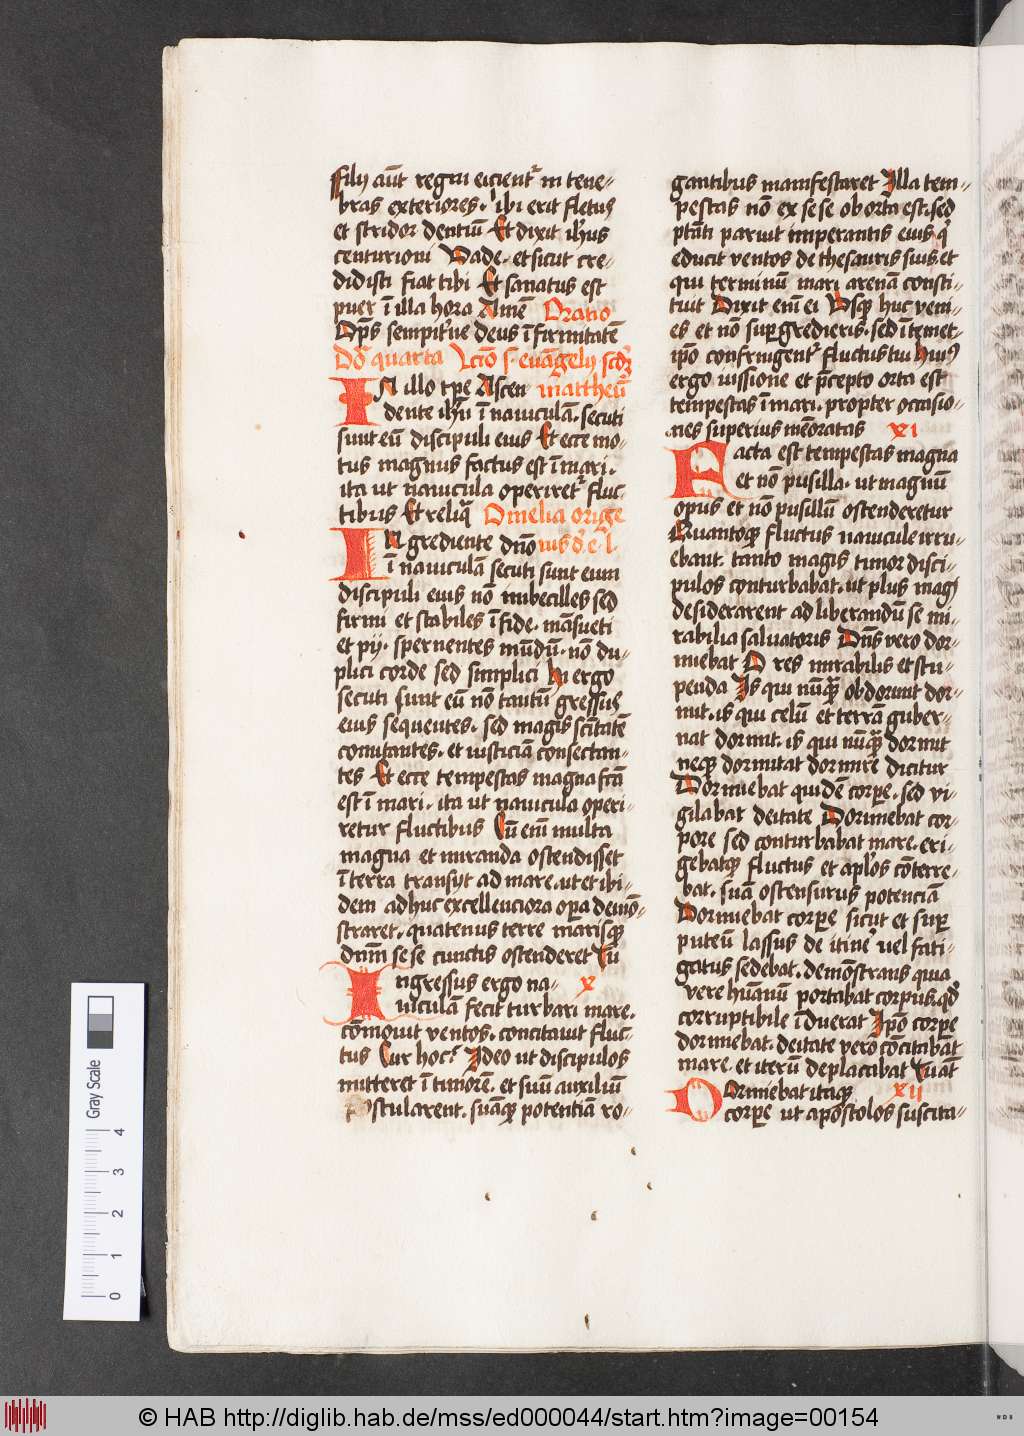 Filij aūt regni eicientᷣ in tene-
bras exteriores. ibi erit fletus
et stridor dentiū Et dixit ih̄us
centurioni Vade. et sicut cre-
didisti fiat tibi Et sanatus est
puer ī illa hora Amē Oratio
Op̄s sempitne deus īfirmitatē
Do᷑ quarta Lctō s. euāgelij scdᷣ
IN illo tp̄e Ascen mattheū
dente ih̄u ī nauiculā. secuti
sunt eū discipuli eius Et ecce mo-
tus magnus factus est ī mari.
ita ut nauicula operiretᷣ fluc-
tibus Et reliq̄ Omelia orige
INgrediente dn̄o nis d̓. e. l.
ī nauiculā secuti sunt eum
discipuli eius nō inbecilles sed
firmi et stabiles ī fide. māsueti
et pij. spernentes mūdū. nō du-
plici corde sed simplici hij ergo
secuti sunt eū nō tantū gressus
eius sequentes. sed magis sc̄itatē
comitantes. et iusticiā consectan-
tes Et ecce tempestas magna fc̄a
est ī mari. ita ut nauicula operi-
retur fluctibus Cū enī multa
magna et miranda ostendisset
ī terra transijt ad mare. ut et ibi-
dem adhuc excellenciora oꝑa demō-
straret. quatenus terre marisqꝫ
dn̄m se se cunctis ostenderet Cū
Ingressus ergo na- x
uiculā fecit turbari mare.
cōmouit ventos. concitauit fluc-
tus Cur hoc? Ideo ut discipulos
mitteret ī timorē. et suū auxiliū
postularent. suāqꝫ potentiā ro-
gantibus manifestaret Illa tem-
pestas nō ex se se oborta est. sed
ptāti paruit imperantis eius q̄
educit ventos de thesauris suis. et
qui terminū mari arenā consti-
tuit Dixit enī ei Vsqꝫ huc veni-
es et nō suꝑgredieris. sed ī temet-
ip̄o confringentᷣ fluctus tui Huiꝰ
ergo iussione et p̄cepto orta est
tempestas ī mari. propter occasio-
nes superius mēoratas xi
Facta est tempestas magna
et nō pusilla. ut magnū
opus et nō pusillū ostenderetur
Quantoqꝫ fluctus nauicule irru-
ebant. tanto magis timor disci-
pulos conturbabat. ut plus magꝭ
desiderarent ad liberandū se mi-
rabilia saluatoris Dn̄s vero dor-
miebat O res mirabilis et stu-
penda Is qui nūq̄ᷓ obdormit dor-
mit. is qui celū et terrā guber-
nat dormit. is qui nūq̄ᷓ dormit
neqꝫ dormitat dormire dicitur
Dormiebat quidē corꝑe. sed vi-
gilabat deitate Dormiebat cor-
pore sed conturbabat mare. eri-
gebatqꝫ fluctus et apl̓os cōterre-
bat. suā ostensurus potenciā
Dormiebat corꝑe sicut et suꝑ
puteū lassus de itinē uel fati-
gatus sedebat. demōstrans quia
vere hūanū portabat corpus. qd̓
corruptibile īduerat Ip̄o corꝑe
dormiebat. deitate vero cōcitabāt
mare. et iterū deplacabat Curāt
Dormiebat itaqꝫ xii
corꝑe ut apostolos suscita-
Gray Scale
4
3
2
1
0
© HAB http://diglib.hab.de/mss/ed000044/start.htm?image=00154